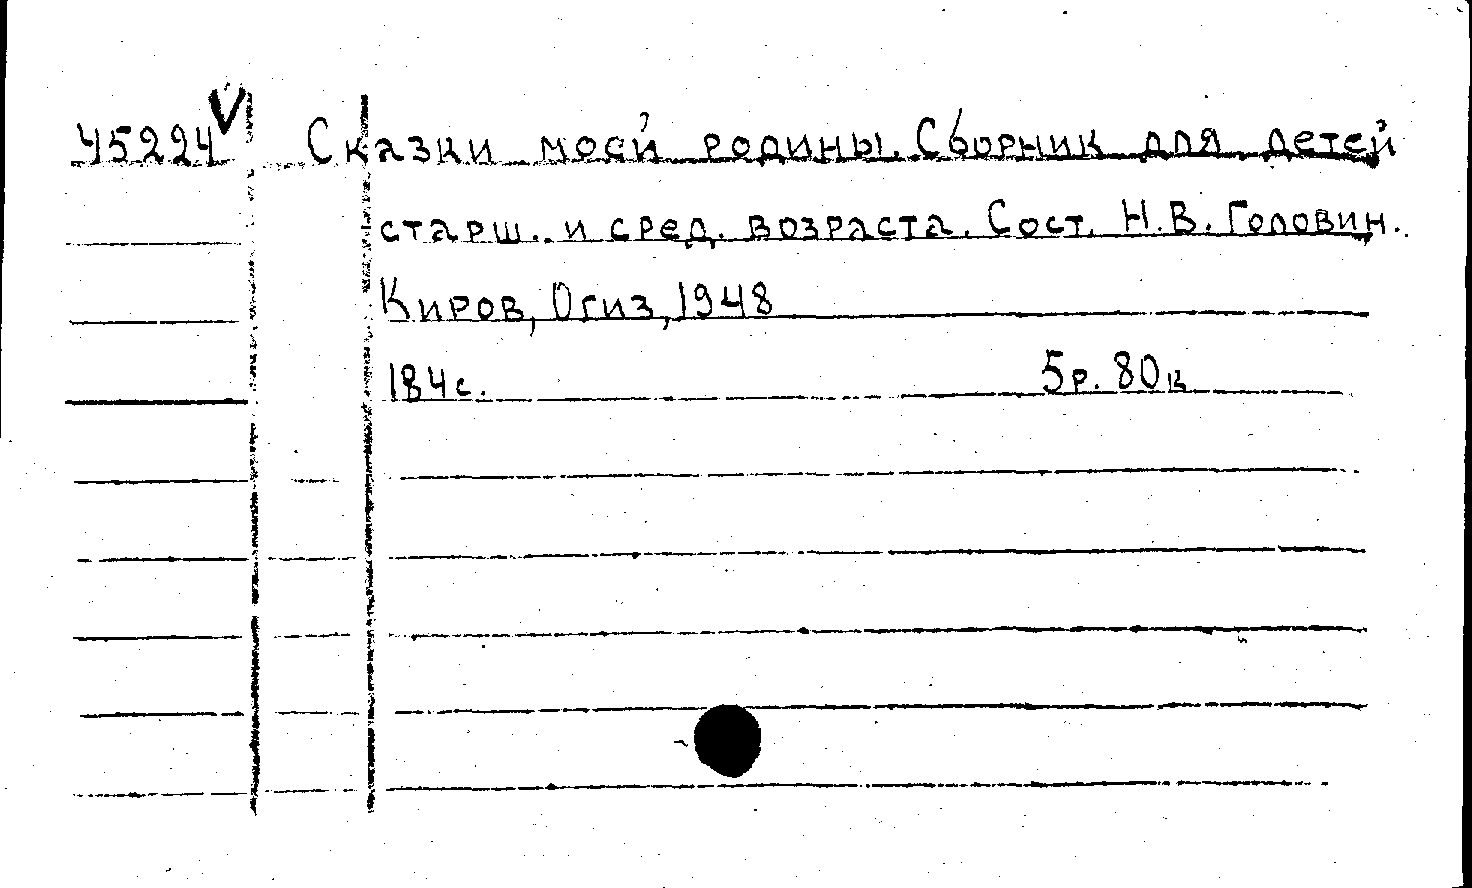 45224 V Сказки моей родины. Сборник для детей
старш. и сред. возраста. Сост. Н.В. Головин.
Киров, Огиз, 1948
184 с. 5р. 80к